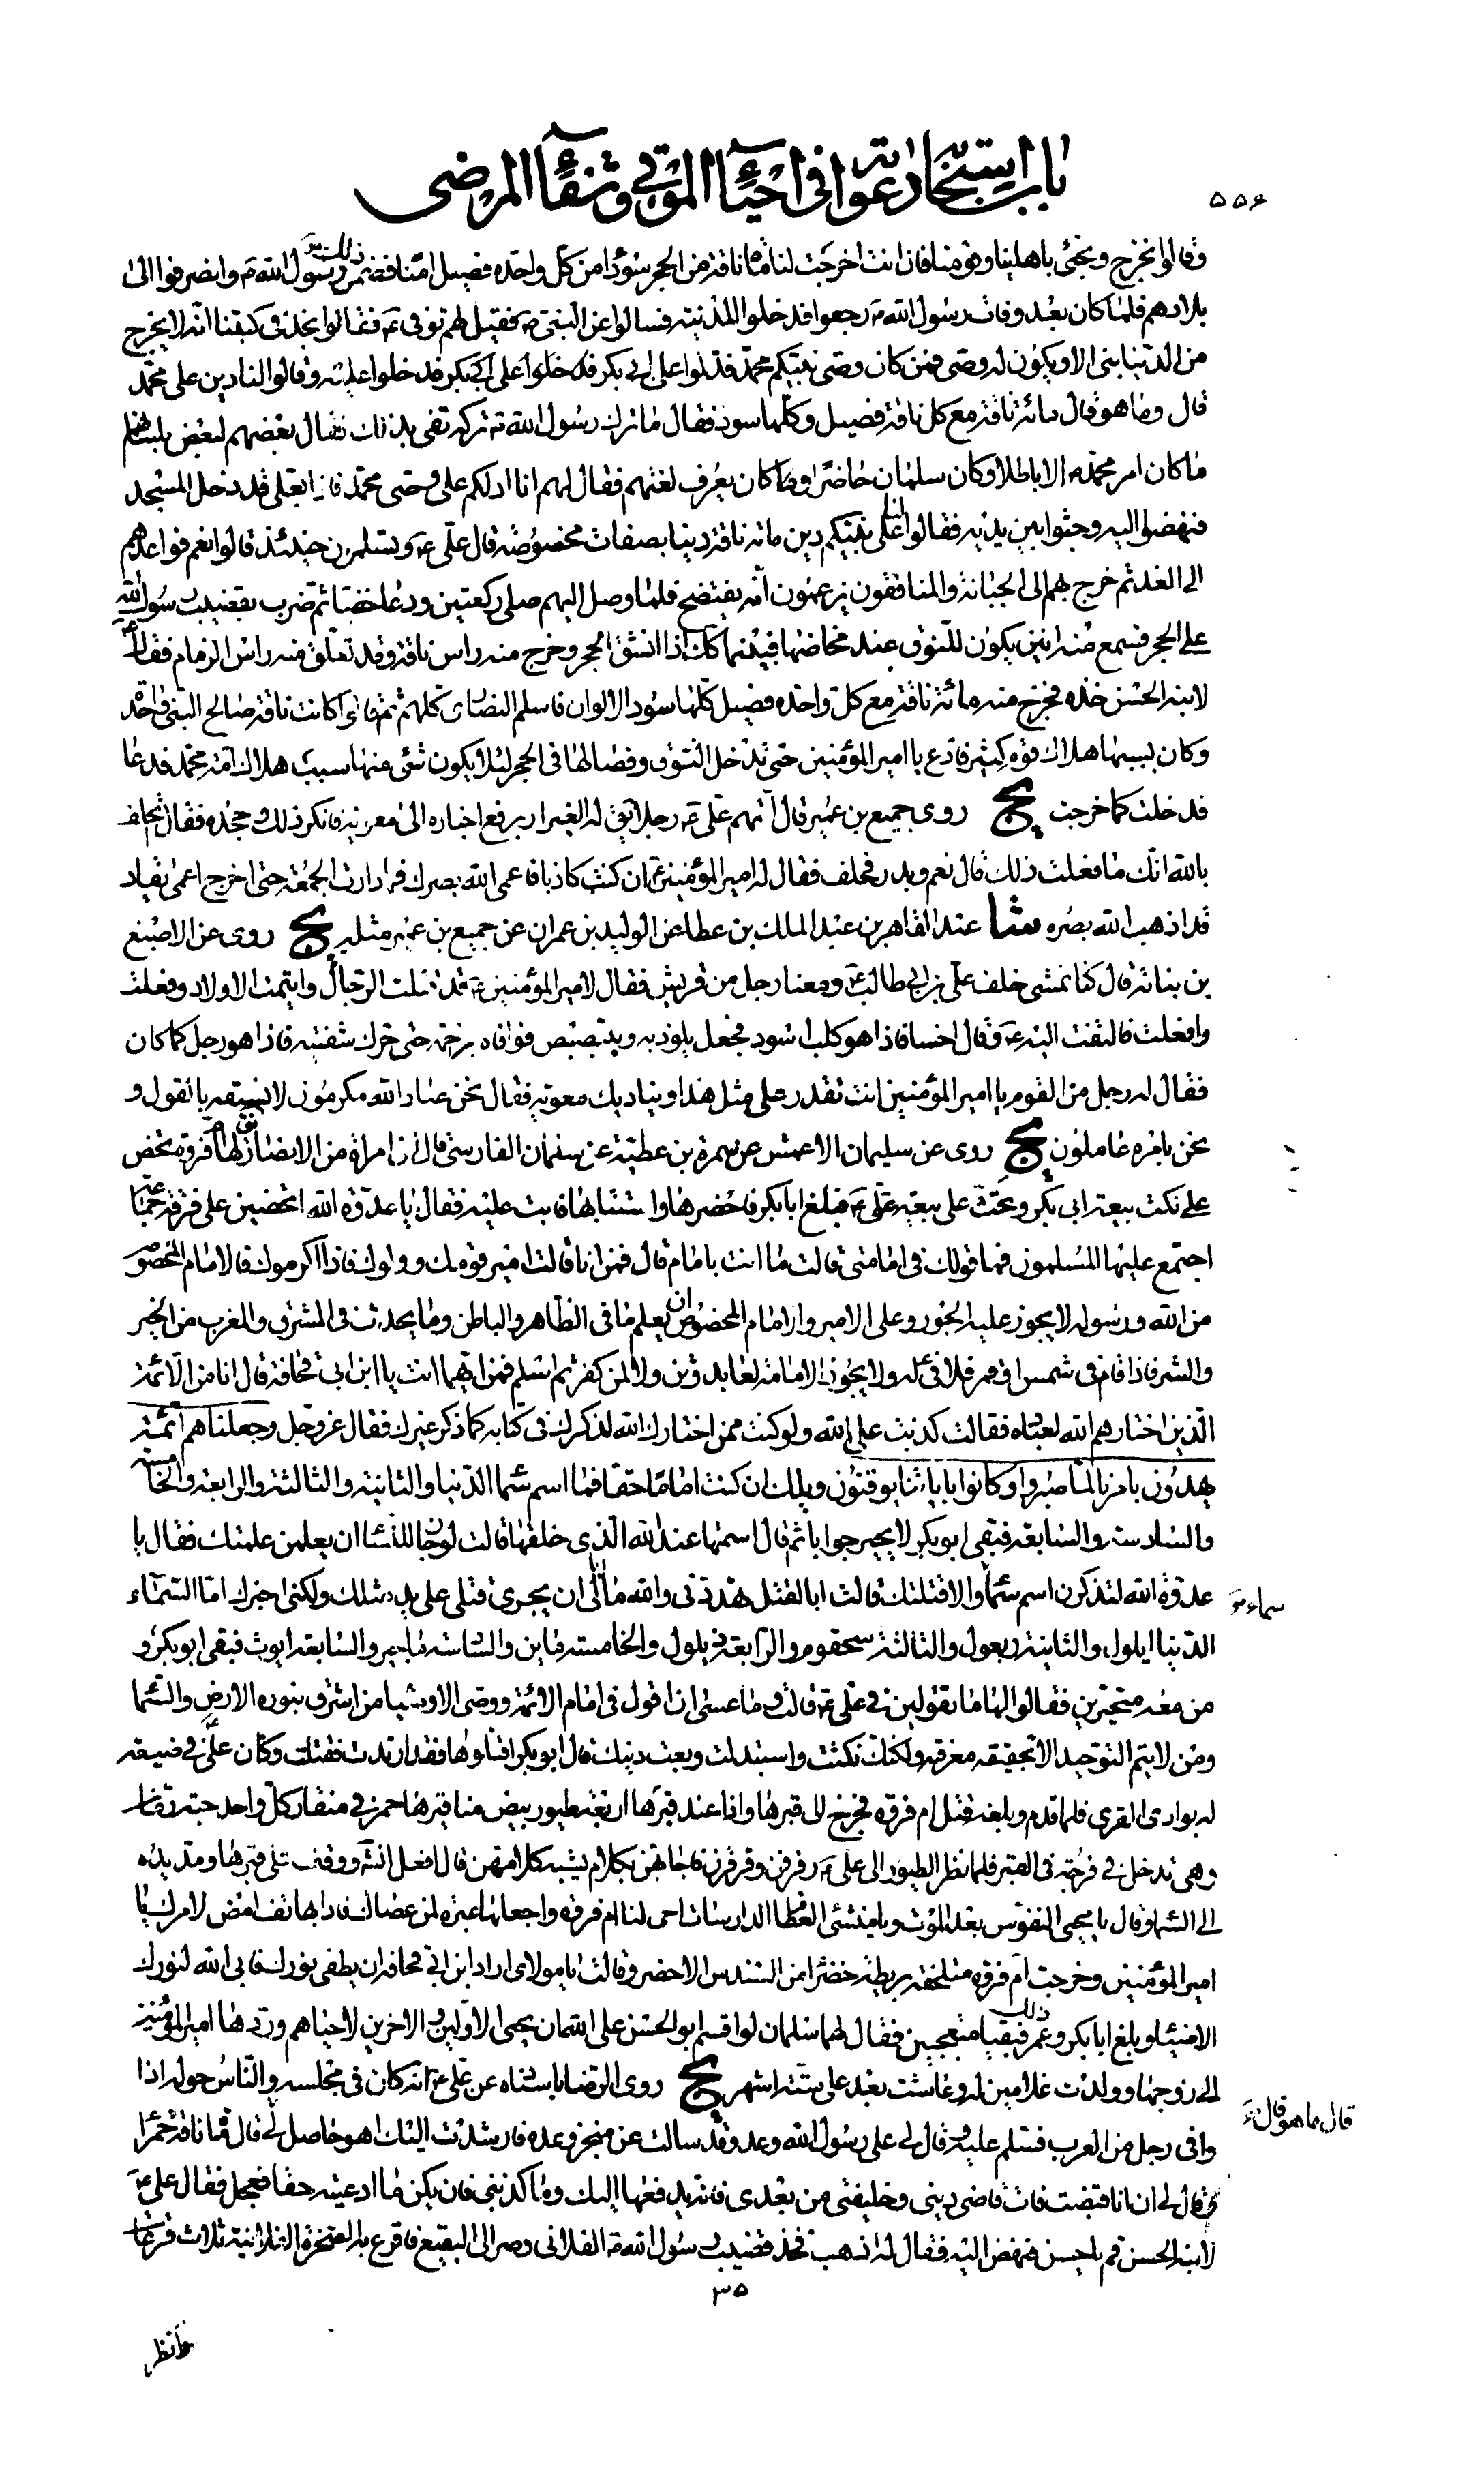 ۵۵۶
باب استجابة دعواته في احياء الموتى وشفاء المرضى
وقالوا نخرج ونجئ باهلينا وقومنا فان انت اخرجت لنا مائة ناقة من الحجر سودا من كل واحدة فصيل امنا فضمن ذلك رسول الله ص وانصرفوا الى
بلادهم فلما كان بعد وفات رسول الله ص رجعوا فدخلوا المدينة فسالوا عن النبي ص فقيل لهم توفي ص فقالوا نجد في كتبنا انه لا يخرج
من الدنيا نبي الا ويكون له وصي فمن كان وصي نبيكم محمد فدلوا على ابي بكر فدخلوا على ابي بكر فدخلوا عليه وقالوا لنا دين على محمد
قال وما هو قال مائة ناقة مع كل ناقة فصيل وكلها سود فقال ما ترك رسول الله ص تركة تفي بذلك فقال بعضهم لبعض بلسانهم
ما كان امر محمد ص الا باطلا وكان سلمان حاضرا وكان يعرف لغتهم فقال لهم انا ادلكم على وصي محمد فاذا بعلي قد دخل المسجد
فنهضوا اليه وجثوا بين يديه فقالوا لنا على نبيكم دين مائة ناقة دينا بصفات مخصوصة قال علي ع وتسلمون حينئذ قالوا نعم فواعدهم
الى الغد ثم خرج بهم الى الجبانة والمنافقون يزعمون انه يفتضح فلما وصل اليهم صلى ركعتين ودعا خفيا ثم ضرب بقضيب رسول الله
على الحجر فسمع منه انين يكون للنوق عند مخاضها فبينما كذلك اذا انشق الحجر وخرج منه راس ناقة وقد تعلق منه راس الزمام فقال ع
لابنه الحسن خذه فخرج منه مائة ناقة مع كل واحدة فصيل كلها سود الالوان فاسلم النصارى كلهم ثم قالوا كانت ناقة صالح النبي واحدة
وكان بسببها هلاك قوم كثير فادع يا امير المؤمنين حتى تدخل النوق وفصالها في الحجر لئلا يكون شئ منها سبب هلاك امة محمد فدعا
فدخلت كما خرجت يج روى جميع بن عمير قال اتهم علي ع رجلا يق له الغيزار برفع اخباره الى معوية فانكر ذلك وجحده فقال اتحلف
بالله انك ما فعلت ذلك قال نعم وبدر فحلف فقال له امير المؤمنين ع ان كنت كاذبا فاعمى الله بصرك فما دارت الجمعة حتى اخرج اعمى يقاد
قد اذهب الله بصره شا عند القاهر بن عبد الملك بن عطا عن الوليد بن عمران عن جميع بن عمير مثله يج روى عن الاصبغ
بن بناتة قال كنا نمشي خلف علي بن ابي طالب ع ومعنا رجل من قريش فقال لامير المؤمنين ع قد قتلت الرجال وايتمت الاولاد وفعلت
وافعلت فالتفت اليه ع وقال اخسا فاذا هو كلب اسود فجعل يلوذ به ويتبصبص فوافاه برحمة حتى حرك شفتيه فاذا هو رجل كما كان
فقال له رجل من القوم يا امير المؤمنين انت تقدر على مثل هذا ويناديك معوية فقال نحن عباد الله مكرمون لا نسبقه بالقول و
نحن بامره عاملون يج روى عن سليمان الاعمش عن سمرة بن عطية عن سلمان الفارسي قال ان امراة من الانصار يق لها ام فروة تحض
على نكث بيعة ابي بكر وتحث على بيعة علي ع فبلغ ابا بكر فاحضرها واستتابها فابت عليه فقال يا عدوة الله اتحضين على فرقة جماعة
اجتمع عليها المسلمون فما قولك في امامتي قالت ما انت بامام قال فمن انا قالت امير قومك وولوك فاذا اكرموك فالامام المخصوص
من الله ورسوله لا يجوز عليه الجور وعلى الامير والامام المخصوص ان يعلم ما في الظاهر والباطن وما يحدث في المشرق والمغرب من الخير
والشر فاذا قام في شمس او قمر فلا فئ له ولا يجوز الامامة لعابد وثن ولا لمن كفر ثم اسلم فمن ايهما انت يا ابن ابي قحافة قال انا من الائمة
الذين اختارهم الله لعباده فقالت كذبت على الله ولو كنت ممن اختارك الله لذكرك في كتابه كما ذكر غيرك فقال عز وجل وجعلناهم ائمة
يهدون بامرنا لما صبروا وكانوا باياتنا يوقنون ويلك ان كنت اماما حقا فما اسم سماء الدنيا والثانية والثالثة والرابعة والخامسة
والسادسة والسابعة فبقي ابو بكر لا يحير جوابا ثم قال اسمها عند الله الذي خلقها قالت لو جاز للنساء ان يعلمن علمتك فقال يا
عدوة الله لتذكرن اسم سماء والا قتلتك قالت ابالقتل تهددني والله ما ابالي ان يجري قتلي على يد مثلك ولكني اخبرك اما السماء
الدنيا ايلول والثانية ربعول والثالثة سحقوم والرابعة ذيلول والخامسة ماين والسادسة ماجير والسابعة ايوث فبقي ابو بكر و
من معه متحيرين فقالوا لها ما تقولين في علي ع قالت وما عسى ان اقول في امام الائمة ووصي الاوصيا من اشرق بنوره الارض والسماء
ومن لا يتم التوحيد الا بحقيقة معرفته ولكنك نكثت واستبدلت وبعت دينك قال ابو بكر اقتلوها فقد ارتدت فقتلت وكان علي في ضيعة
له بوادي القرى فلما قدم وبلغه قتل ام فروة فخرج الى قبرها واذا عند قبرها اربعة طيور بيض مناقيرها حمر في منقار كل واحد حبة رمان
وهي تدخل في فرجة في القبر فلما نظر الطيور الى علي ع رفرفن وقرقرن فاجابهن بكلام يشبه كلامهن قال افعل انشاء ووقف على قبرها ومد يده
الى السماء وقال يا محيي النفوس بعد الموت ويا منشئ العظام الدارسات احي لنا ام فروة واجعلها عبرة لمن عصاك فاذا بهاتف امض لامرك يا
امير المؤمنين وخرجت ام فروة متلحفة بريطة خضراء من السندس الاخضر وقالت يا مولاي اراد ابن ابي قحافة ان يطفي نورك فابى الله لنورك
الا ضياء وبلغ ابا بكر وعمر ذلك فبقيا متعجبين فقال لهما سلمان لو اقسم ابو الحسن على الله ان يحيي الاولين والاخرين لاحياهم وردها امير المؤمنين
الى زوجها وولدت غلامين له وعاشت بعد علي ستة اشهر يج روى الرضا باسناده عن علي ع انه كان في مجلسه والناس حوله اذا
وافى رجل من العرب فسلم عليه وقال لي على رسول الله وعد وقد سالت عن منجز وعده فارشدت اليك اهو حاصل لي قال مائة ناقة حمراء
وقال لي ان انا قبضت فات قاضي ديني وخليفتي من بعدي فانه يدفعها اليك وما كذبني فان يكن ما ادعيته حقا فعجل فقال علي ع
لابنه الحسن قم يا حسن فنهض اليه فقال له اذهب فخذ قضيب رسول الله ص الفلاني وصر الى البقيع فاقرع به الصخرة الفلانية ثلاث قرعات
سماء
قال ما هو قال
۳۵
وانظر